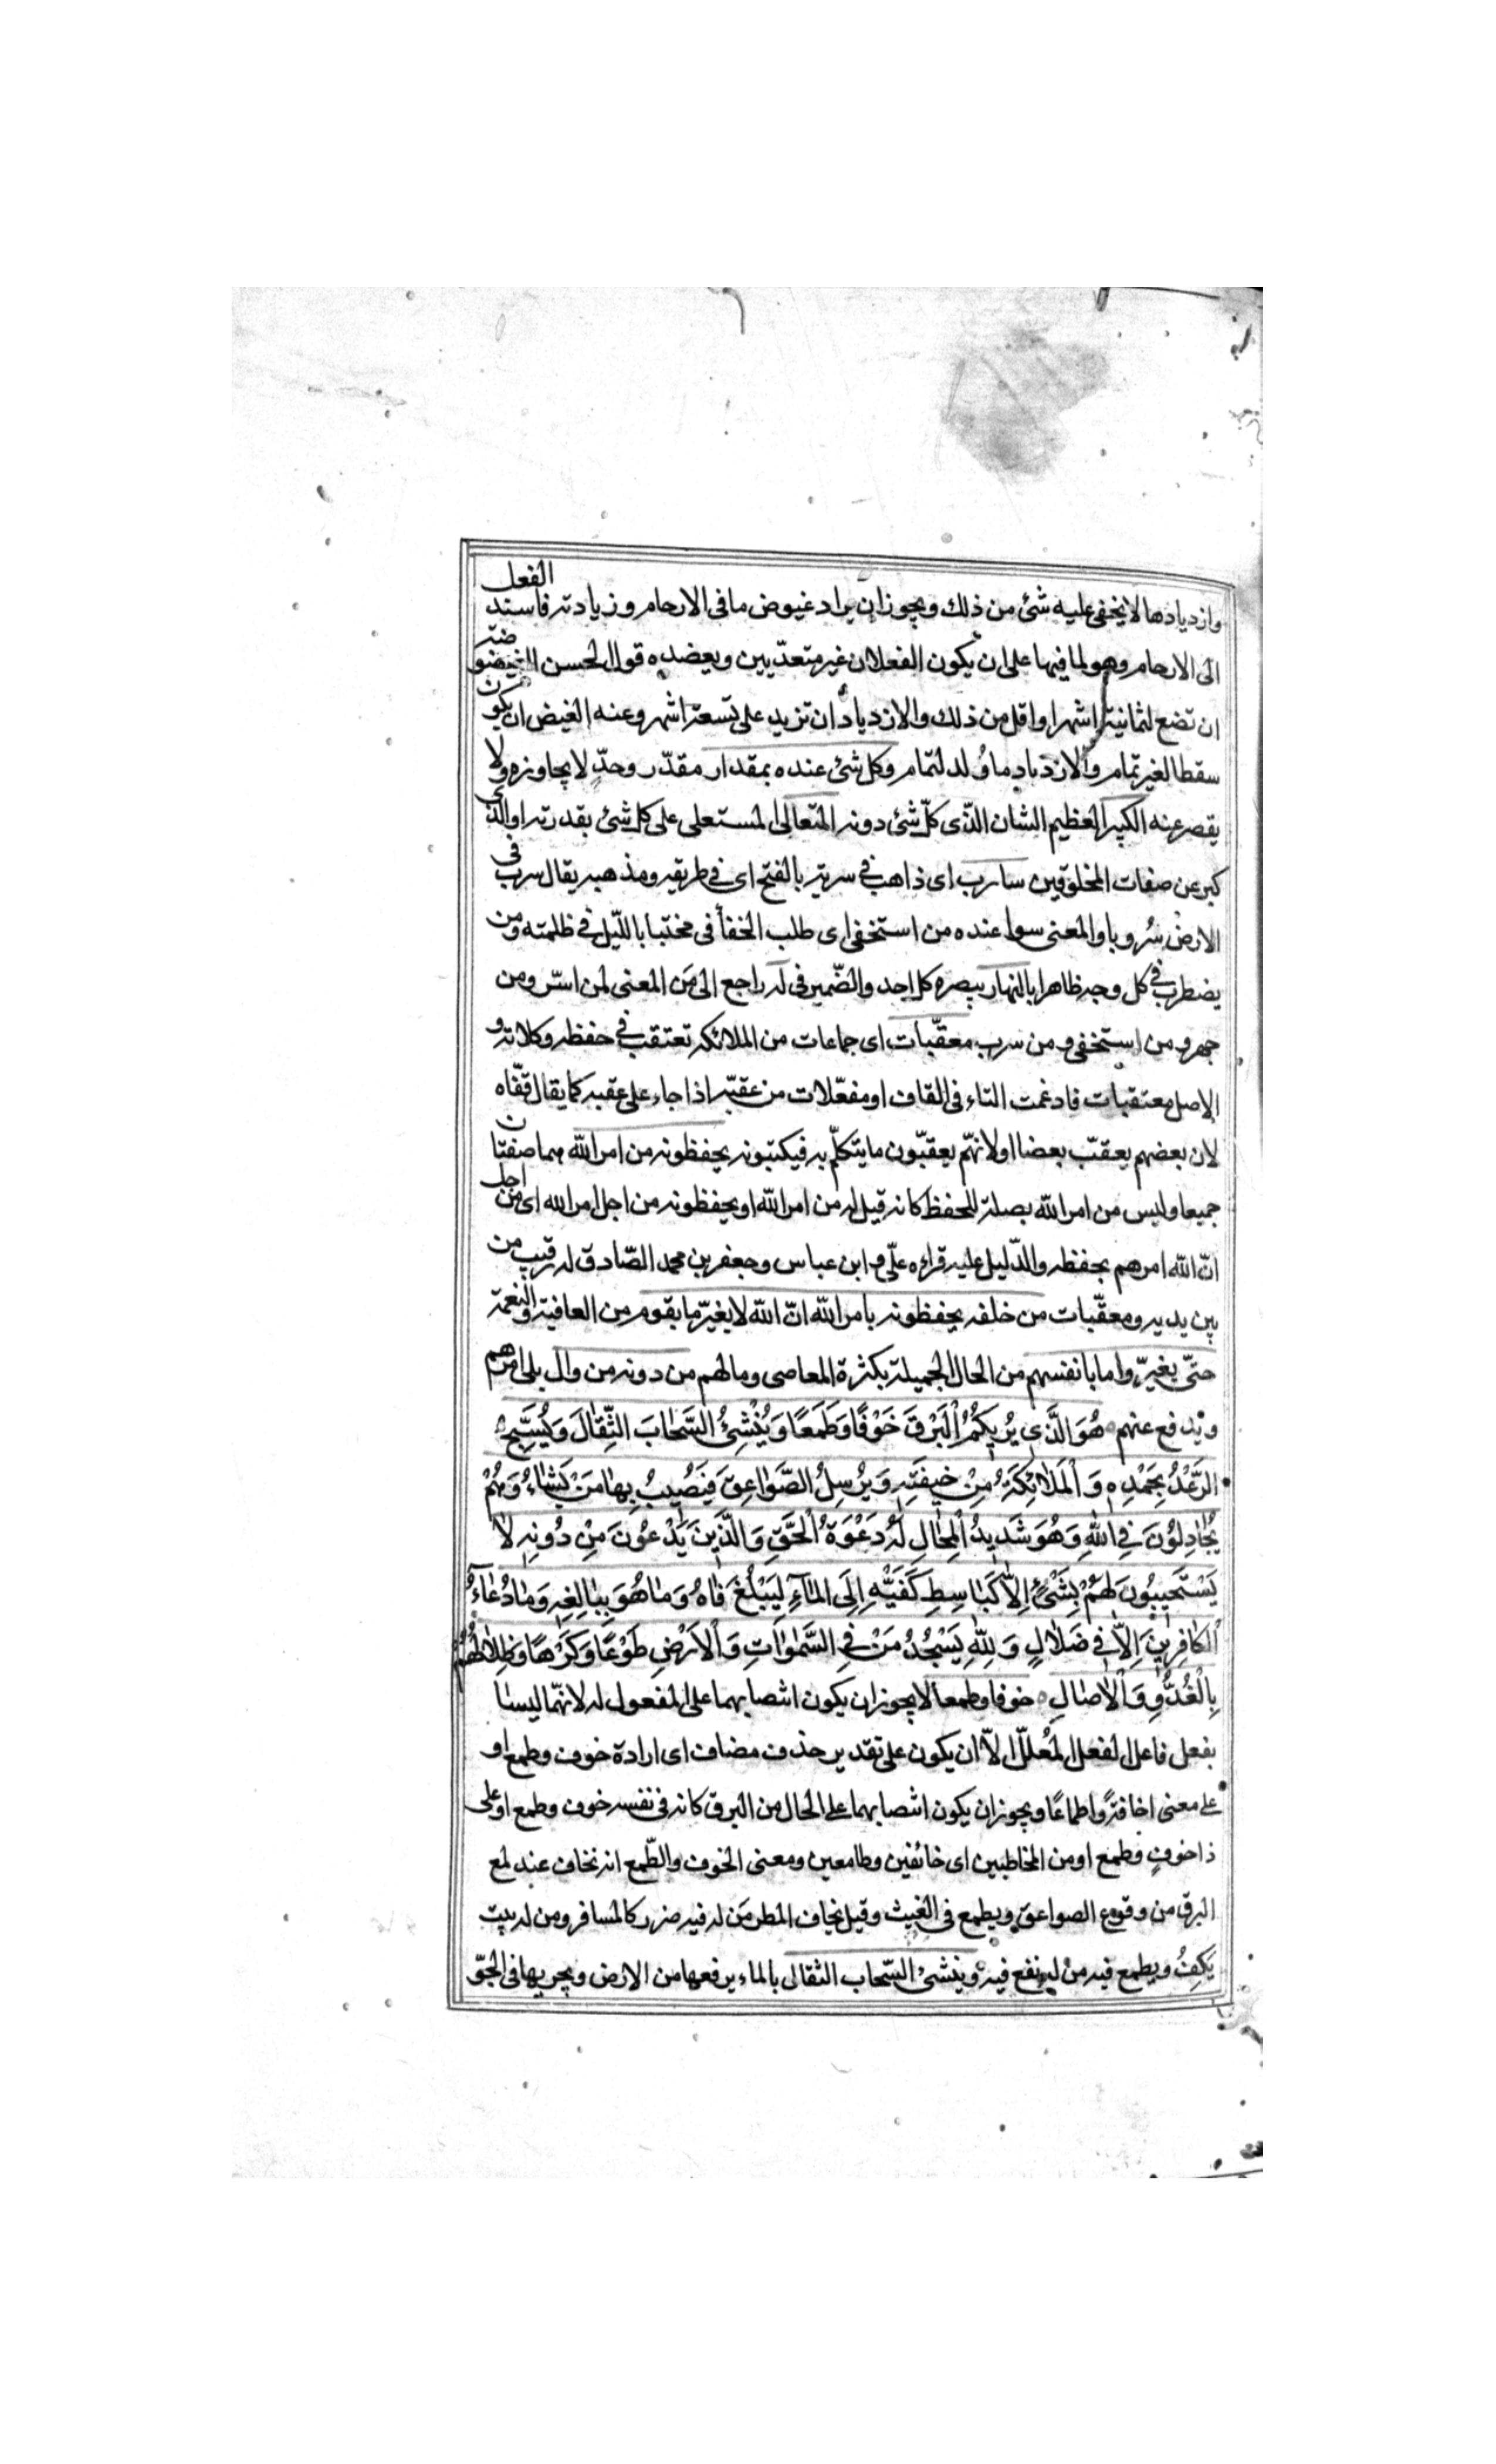 وازديادها لا يخفى عليه شئ من ذلك ويجوز ان يراد غيوض ما فى الارحام وزيادته فاسند الفعل
الى الارحام وهو لما فيها على ان يكون الفعلان غير متعدّيين ويعضده قول الحسن الغيضوضة
ان تضع لثمانية اشهر او اقل من ذلك والازدياد ان تزيد على تسعة اشهر وعنه الغيض ان يكون
سقطا لغير تمام والازدياد ما وُلد لتمام وكل شئ عنده بمقدار مقدّر وحدّ لا يجاوزه ولا
يقصر عنه الكبير العظيم الشان الّذى كلّ شئ دونه المتعالى المستعلى على كل شئ بقدرته او الذى
كبر عن صفات المخلوقين سارب اى ذاهب فى سربه بالفتح اى فى طريقه ومذهبه يقال سرب فى
الارض سُروبا والمعنى سواء عنده من استخفى اى طلب الخفأ فى مختبا باللّيل فى ظلمته ومن
يضطرب فى كل وجه ظاهرا بالنهار يبصره كل احد والضّمير فى له راجع الى مَن المعنى لمن اسرّ ومن
جهر ومن استخفى ومن سرب معقّبات اى جماعات من الملائكه تعتقب فى حفظه وكلاته و
الاصل معتقبات فادغمت التاء فى القاف او مفعّلات من عقبّه اذا جاء على عقبه كما يقال قفّاه
لان بعضهم يعقّب بعضا او لانهّم يعقبّون ما يتكلّم به فيكتبونه يحفظونه من امر الله هما صفتان
جميعا وليس من امر الله بصلة للحفظ كانه قيل له من امر الله او يحفظونه من اجل امر الله اى من اجل
انّ الله امرهم بحفظه والدّليل عليه قراءه علىّ و ابن عباس وجعفر بن محمد الصّادق له رقيب من
بين يديه ومعقّبات من خلفه يحفظونه بامر الله انّ الله لا يغيّر ما بقوم من العافية والنعمة
حتّى يغيرّوا ما بانفسهم من الحال الجميلة بكثرة المعاصى وما لهم من دونه من وال يلى امرهم
ويدفع عنهم هُوَ الَّذى يُريكُمُ الْبَرْقَ خَوْفًا وَطَمَعًا وَيُنْشِئُ السَّحابَ الثِّقالَ وَيُسَبِّحُ
الرَّعْدُ بِحَمْدِه وَالْمَلائِكَةُ مِنْ خيفَتِهِ وَيُرْسِلُ الصَّواعِقَ فَيُصيبُ بِها مَنْ يَشاءُ وَهُمْ
يُجادِلُونَ فِى اللهِ وَهُوَ شَديدُ الْمِحالِ لَهُ دَعْوَةُ الْحَقِّ وَالَّذينَ يَدْعُونَ مِنْ دُونِهِ لا
يَسْتَجيبُونَ لَهُمْ بِشَىْءٍ اِلاّ كَباسِطِ كَفَّيْهِ اِلَى الْمآءِ لِيَبْلُغَ فاهُ وَما هُوَ بِبالِغِهِ وَما دُعآءُ
الْكافِرينَ اِلاّ فى ضَلالٍ وَلِلّهِ يَسْجُدُ مَنْ فِى السَّمواتِ وَالْاَرْضِ طَوْعًا وَكَرْهًا وَظِلالُهُمْ
بِالْغُدُوِّ وَالْاصالِ خوفا وطمعا لا يجوز ان يكون انتصابهما على المفعول له لانهّما ليسا
بفعل فاعل الفعل المُعلّل الاّ ان يكون على تقدير حذف مضاف اى ارادة خوف وطمع او
على معنى اخافةً واطماعًا ويجوز ان يكون انتصابهما على الحال من البرق كانه فى نفسه خوف وطمع او على
ذا خوفٍ وطمع او من المخاطبين اى خائفين وطامعين ومعنى الخوف والطّمع انه تخاف عند لمع
البرق من وقوع الصواعق ويطمع فى الغيث وقيل يخاف المطر مَن له فيه ضرر كالمسافر ومن له بيت
يَكِفُ ويطمع فيه من له نفع فيه وينشئ السّحاب الثقال بالماء يرفعها من الارض ويجريها فى الجوّ